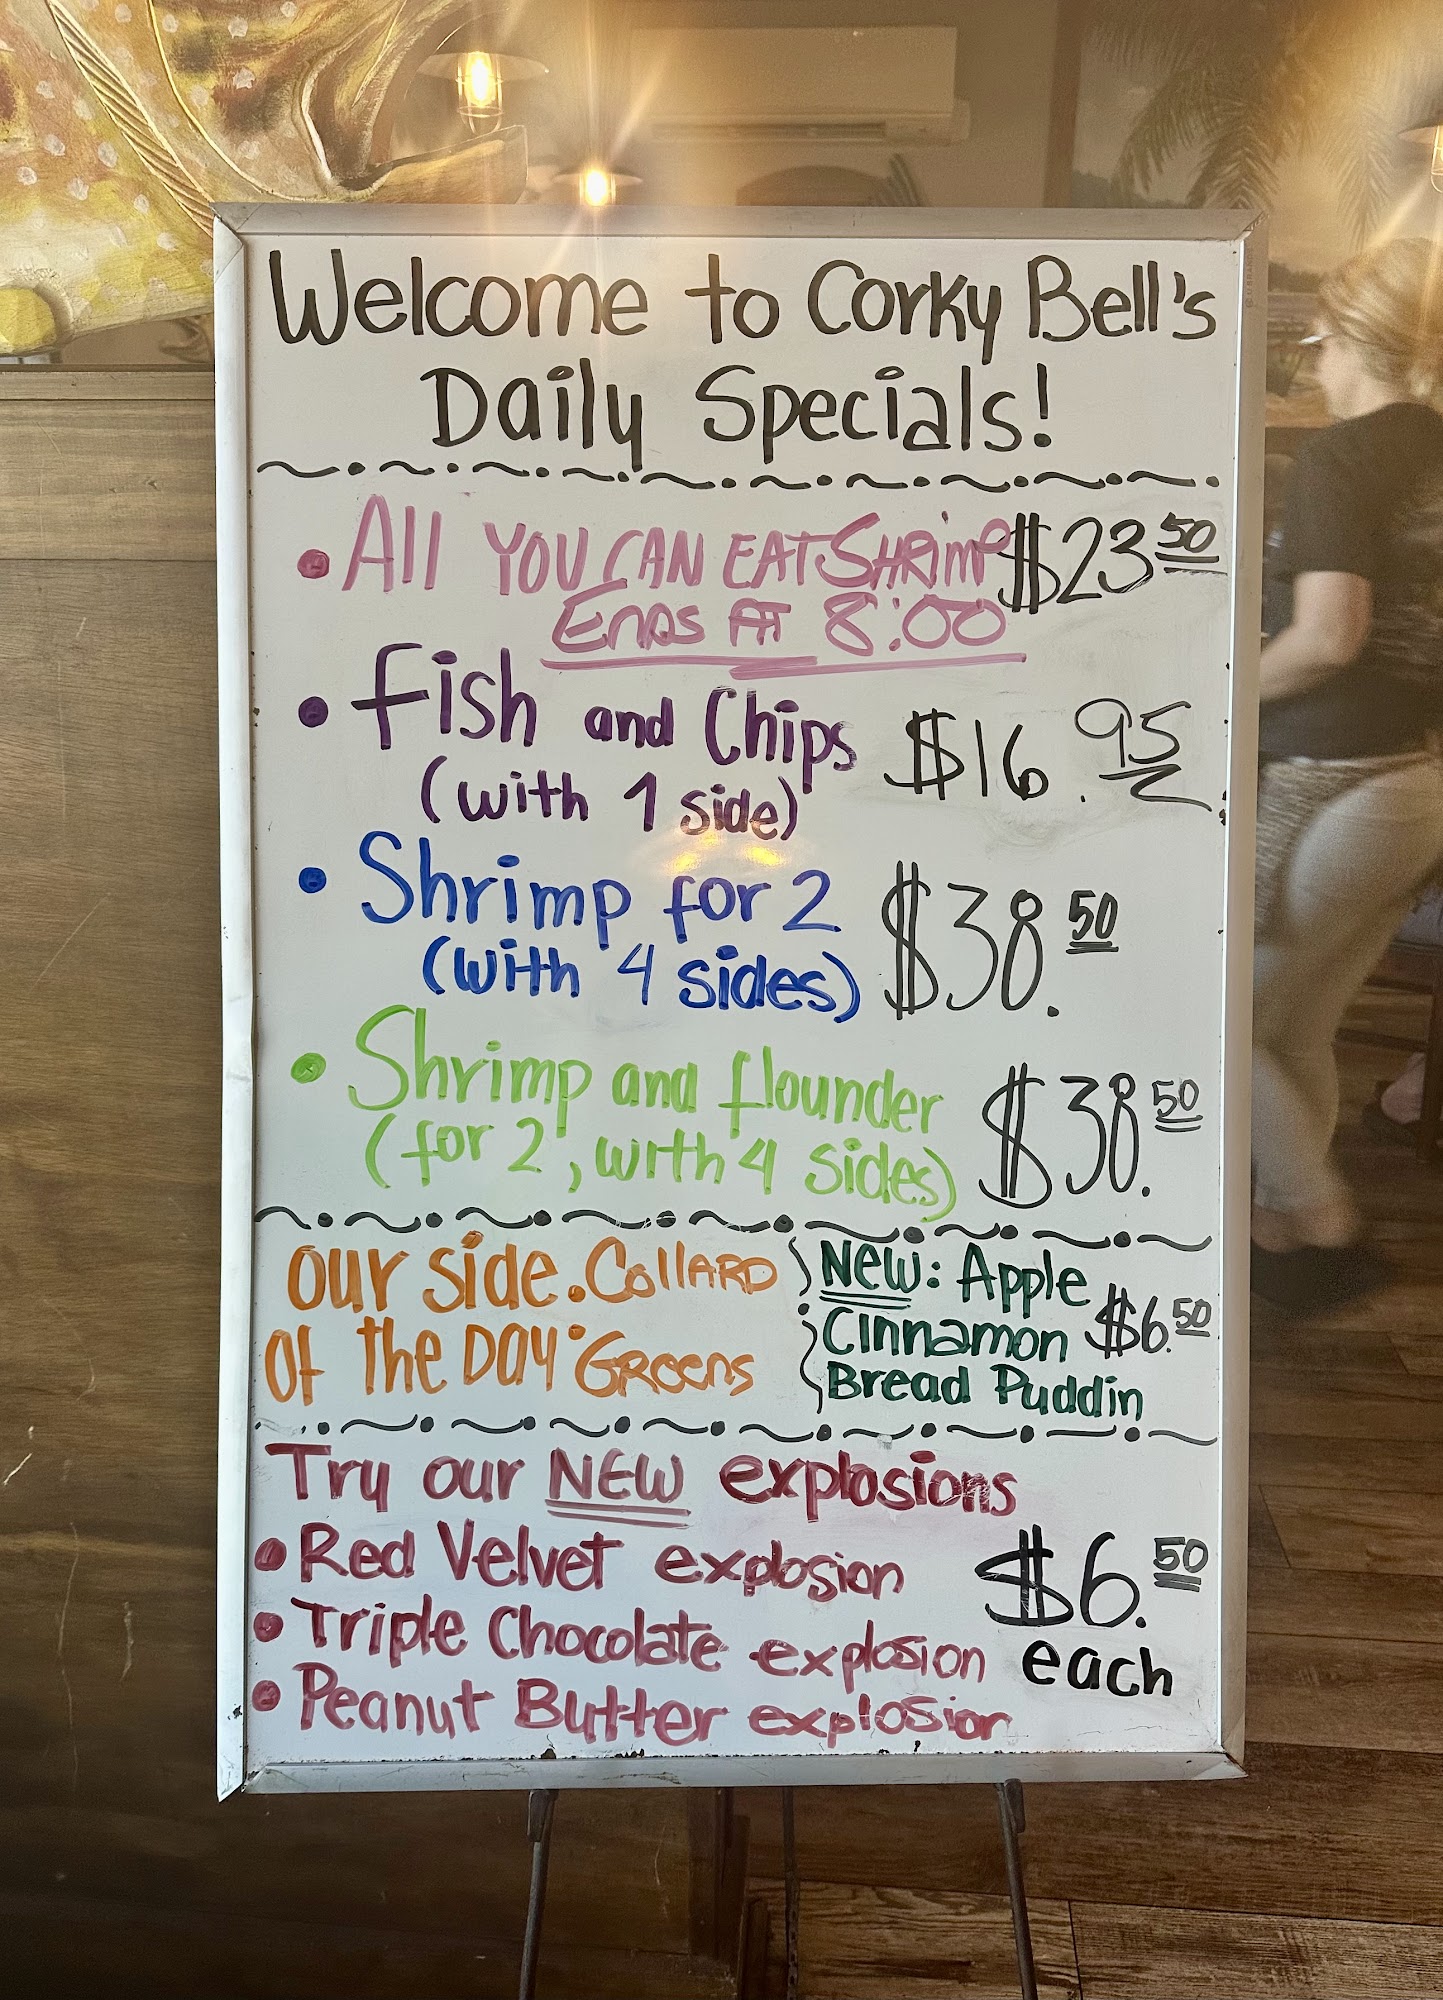 Welcome to Corky Bell's
Daily Specials!
• All YOU CAN EAT SHRimp $23 50
ENDS AT 8:00
• Fish and Chips $16.95
(with 1 side)
• Shrimp for 2 $38.50
(with 4 sides)
• Shrimp and flounder $38.50
(for 2, with 4 sides)
our side : Collard
of the DAY Greens
NEW: Apple
Cinnamon $6.50
Bread Puddin
Try our NEW explosions
• Red Velvet explosion $6.50
• Triple Chocolate explosion each
• Peanut Butter explosion